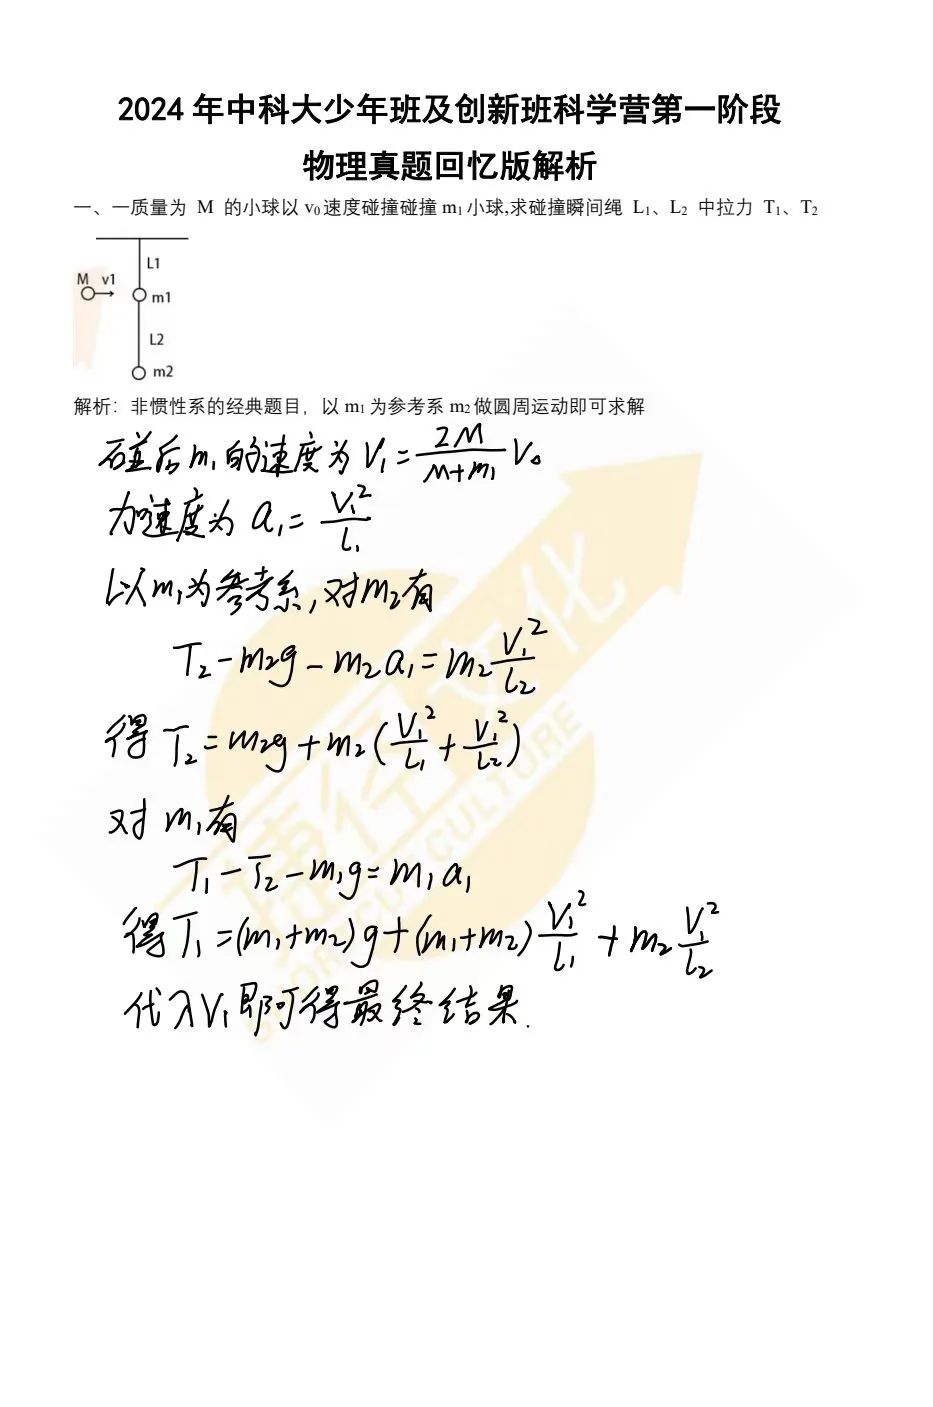 2024 年中科大少年班及创新班科学营第一阶段
物理真题回忆版解析
一、一质量为 M 的小球以 v₀速度碰撞碰撞 m₁小球,求碰撞瞬间绳 L₁、L₂ 中拉力 T₁、T₂
L1
M v1
m1
L2
m2
解析：非惯性系的经典题目，以 m₁为参考系 m₂做圆周运动即可求解
碰后m₁的速度为 V₁=2M/(M+m₁) V₀
加速度为 a₁= V₁²/l₁
以m₁为参考系,对m₂有
T₂-m₂g-m₂a₁=m₂ V₁²/l₂
得 T₂=m₂g+m₂(V₁²/l₁+V₁²/l₂)
对 m₁有
T₁-T₂-m₁g=m₁a₁
得T₁=(m₁+m₂)g+(m₁+m₂)V₁²/l₁+m₂V₁²/l₂
代入V₁即可得最终结果.